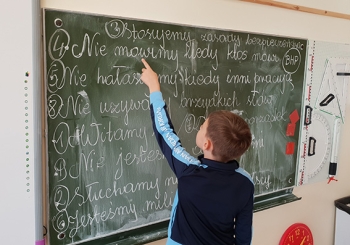 ③ Stosujemy zasady bezpieczeństwa
BHP
④ Nie mówimy kiedy ktoś mówi
⑤ Nie hałasujemy kiedy inni pracują
⑧ Nie używamy brzydkich słów
① Witamy
Nie jesteś
② Słuchamy
⑥ Jesteśmy mili